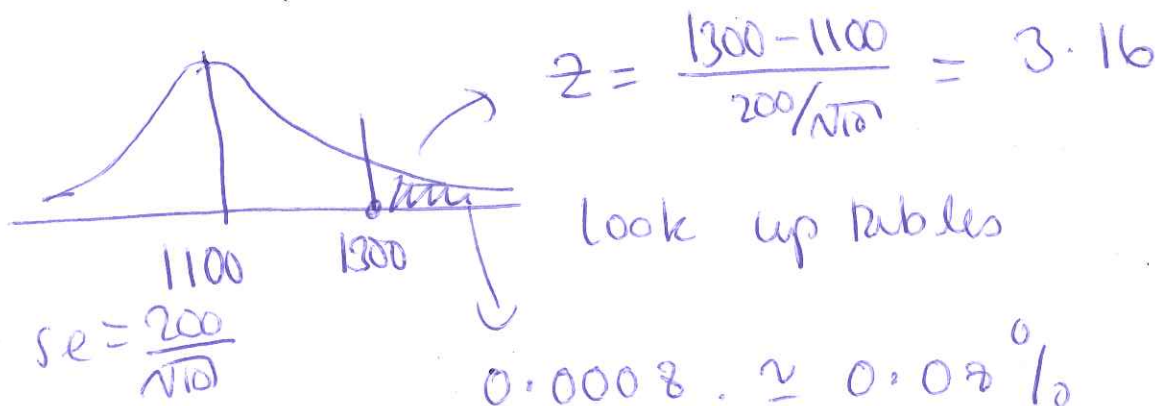 z = (1300 - 1100) / (200/√10) = 3.16
look up tables
1100 1300
se = 200/√10
0.0008. ≃ 0.08%